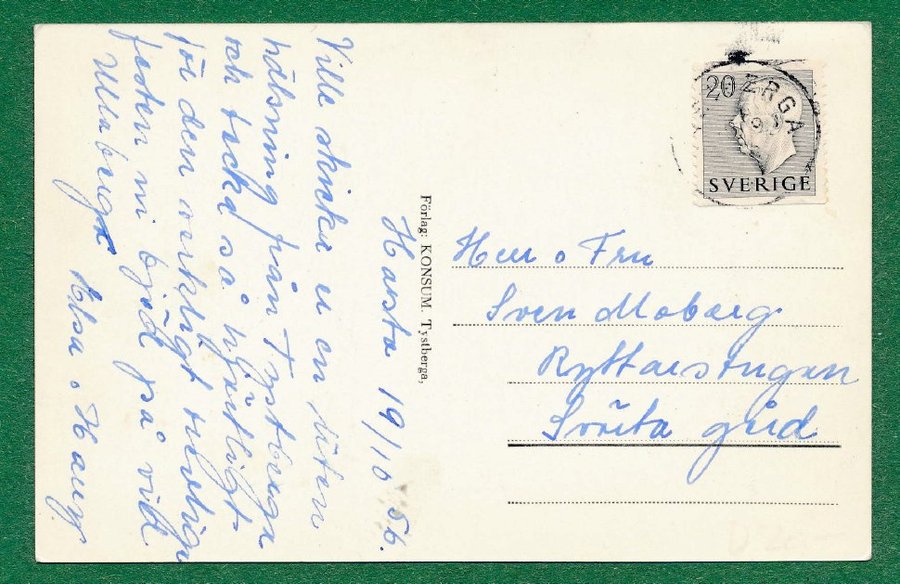 Harsta 19/10 56.
Ville skicka er en liten
hälsning från Tystberga
och tacka så hjärtligt
för den verkligt trevliga
festen ni bjöd på vid
Ullaberga
Elsa o Harry
Förlag: KONSUM, Tystberga,
20
SVERIGE
Herr o Fru
Sven Moberg
Ryttarstugan
Svärta gård